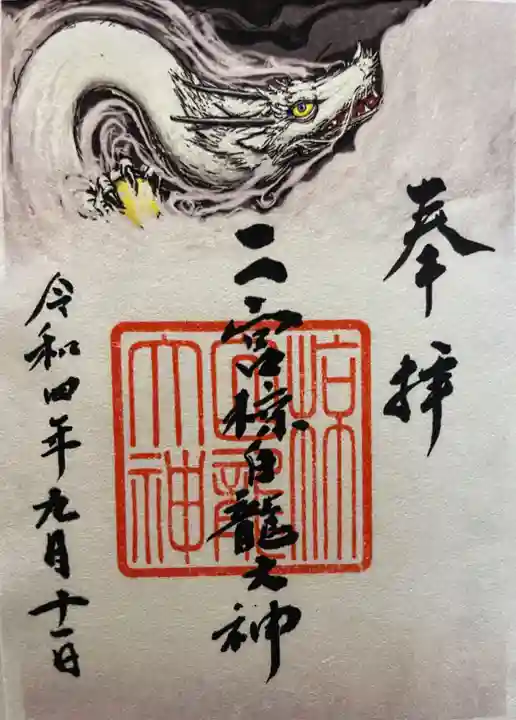 奉拝
三宮椋白龍大神
令和四年九月十一日
椋白龍大神